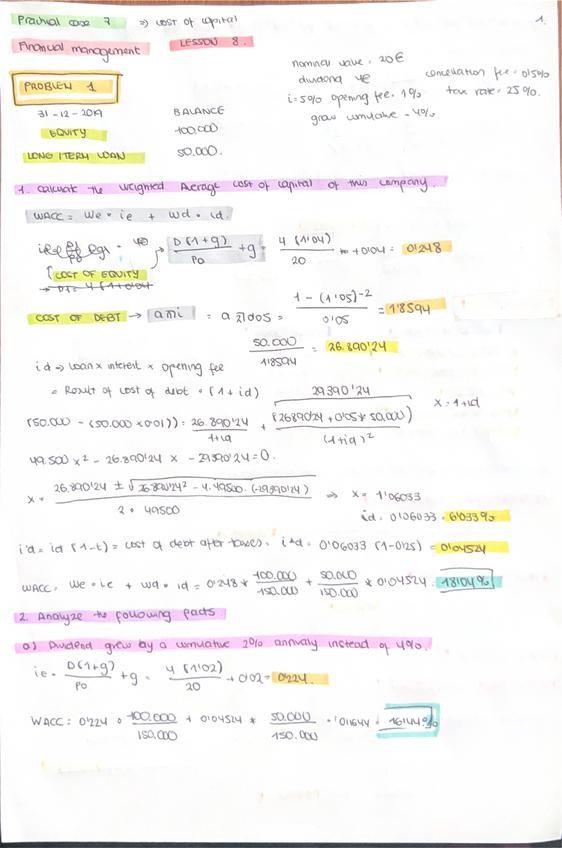 Practical case 7 => cost of capital
1.
Financial management LESSON 8.
nominal value = 20€
dividend 4€ cancellation fee = 0'5%
i = 5% opening fee = 1% tax rate = 25%.
grow cumulative = 4%
PROBLEM 1
31-12-2019 BALANCE
EQUITY 100.000
LONG TERM LOAN 50.000.
1. Calculate the Weighted Average cost of capital of this company.
WACC = We · ie + Wd · id.
D(1+g)/P0 + g = 4(1'04)/20 + 0'04 = 0'248
COST OF EQUITY
D1 = 4(1+0'04)
COST OF DEBT → ani = a 2 0'05 = 1-(1'05)^-2/0'05 = 1'8594
50.000/1'8594 = 26.890'24
id => loan x interest x opening fee
= Result of cost of debt = (1+id) 29390'24 x = 1+id
(50.000 - (50.000 x 0'01)) = 26.890'24/1+id + (26890'24 + 0'05 * 50.000)/(1+id)^2
49.500 x^2 - 26.890'24 x - 29390'24 = 0.
x = 26.890'24 ± √26.890'24^2 - 4·49500·(-29390'24)/2 · 49500 => x = 1'06033
id = 0'06033 = 6'033%
i'd = id (1-t) = cost of debt after taxes. i'd = 0'06033 (1-0'25) = 0'04524
WACC = We · ie + Wd · id = 0'248 * 100.000/150.000 + 50.000/150.000 * 0'04524 = 18'04%
2. Analyze the following facts
a) Dividend grew by a cumulative 2% annually instead of 4%.
ie = D(1+g)/P0 + g = 4(1'02)/20 + 0'02 = 0'224.
WACC = 0'224 * 100.000/150.000 + 0'04524 * 50.000/150.000 = 0'1644 = 16'44%